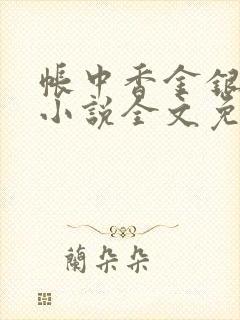 帳中香金銀
小說全文免
蘭朵朵